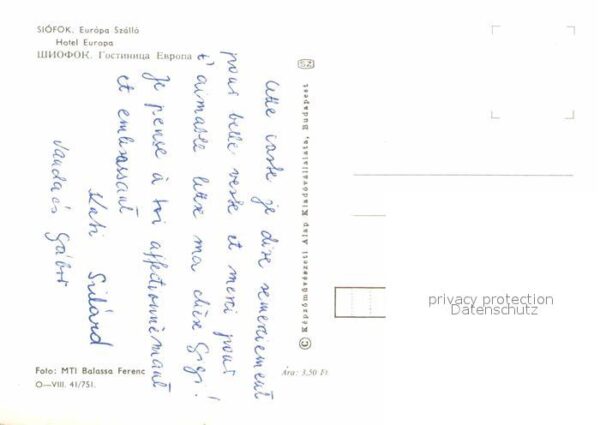 SIÓFOK. Európa Szálló
Hotel Europa
ШИОФОК. Гостиница Европа
cette carte je dire remerciement
pour belle veste et merci pour
t'aimable lettre ma chère Gigi!
Je pense à toi affectionnèmant
et embrassant
Kati Szilárd
Vanda és Gábor
© Képzőművészeti Alap Kiadóvállalata, Budapest
privacy protection
Datenschutz
Foto: MTI Balassa Ferenc
O—VIII. 41/751.
Ára: 3,50 Ft.